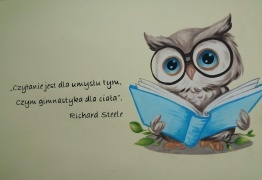 „Czytanie jest dla umysłu tym,
czym gimnastyka dla ciała”.
Richard Steele